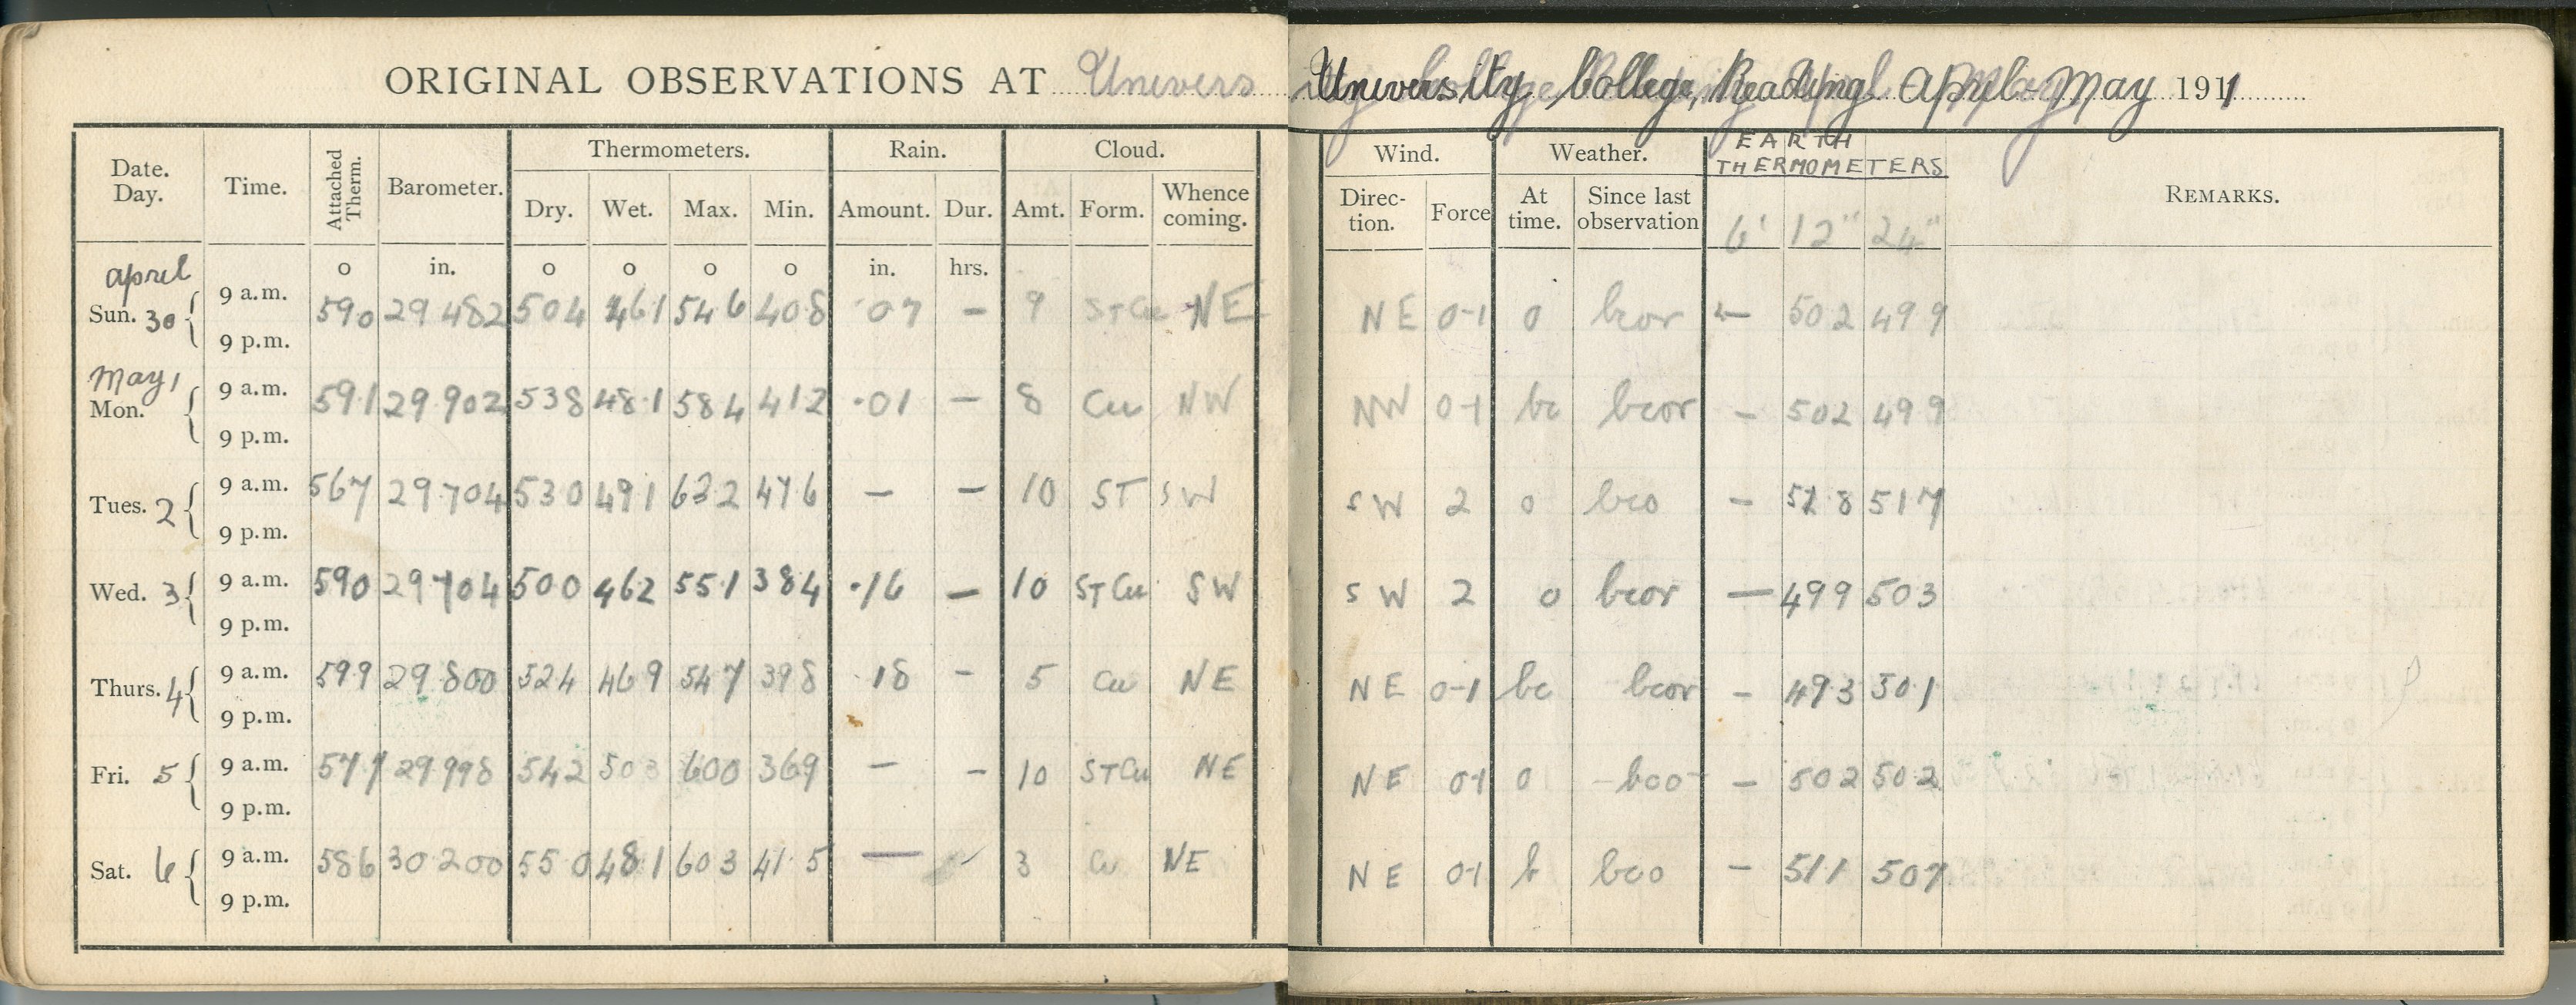 ORIGINAL OBSERVATIONS AT Univers University College, Reading April - May 1911
Date. Day. Time. Attached Therm. Barometer. Thermometers. Rain. Cloud. Wind. Weather. EARTH THERMOMETERS REMARKS.
Dry. Wet. Max. Min. Amount. Dur. Amt. Form. Whence coming. Direc- tion. Force At time. Since last observation 6" 12" 24"
April o in. o o o o in. hrs.
Sun. 30 9 a.m. 590 29 482 504 461 546 408 ·07 - 9 ST Cu NE NE 0-1 o bcor - 502 499
9 p.m.
May 1
Mon. 9 a.m. 591 29 902 538 48·1 584 412 ·01 - 8 Cu NW NW 0-1 bc bcor - 502 499
9 p.m.
Tues. 2 9 a.m. 567 29 704 530 491 632 476 - - 10 ST SW SW 2 o bco - 518 517
9 p.m.
Wed. 3 9 a.m. 590 29 704 500 462 551 384 ·16 - 10 ST Cu SW SW 2 o bcor - 499 503
9 p.m.
Thurs. 4 9 a.m. 599 29 800 524 469 547 398 18 - 5 Cu NE NE 0-1 bc bcor - 493 501
9 p.m.
Fri. 5 9 a.m. 577 29 998 542 503 600 369 - - 10 ST Cu NE NE 0-1 o bco - 502 502
9 p.m.
Sat. 6 9 a.m. 586 30 200 550 481 603 41·5 - - 3 Cu NE NE 0-1 b bco - 511 507
9 p.m.